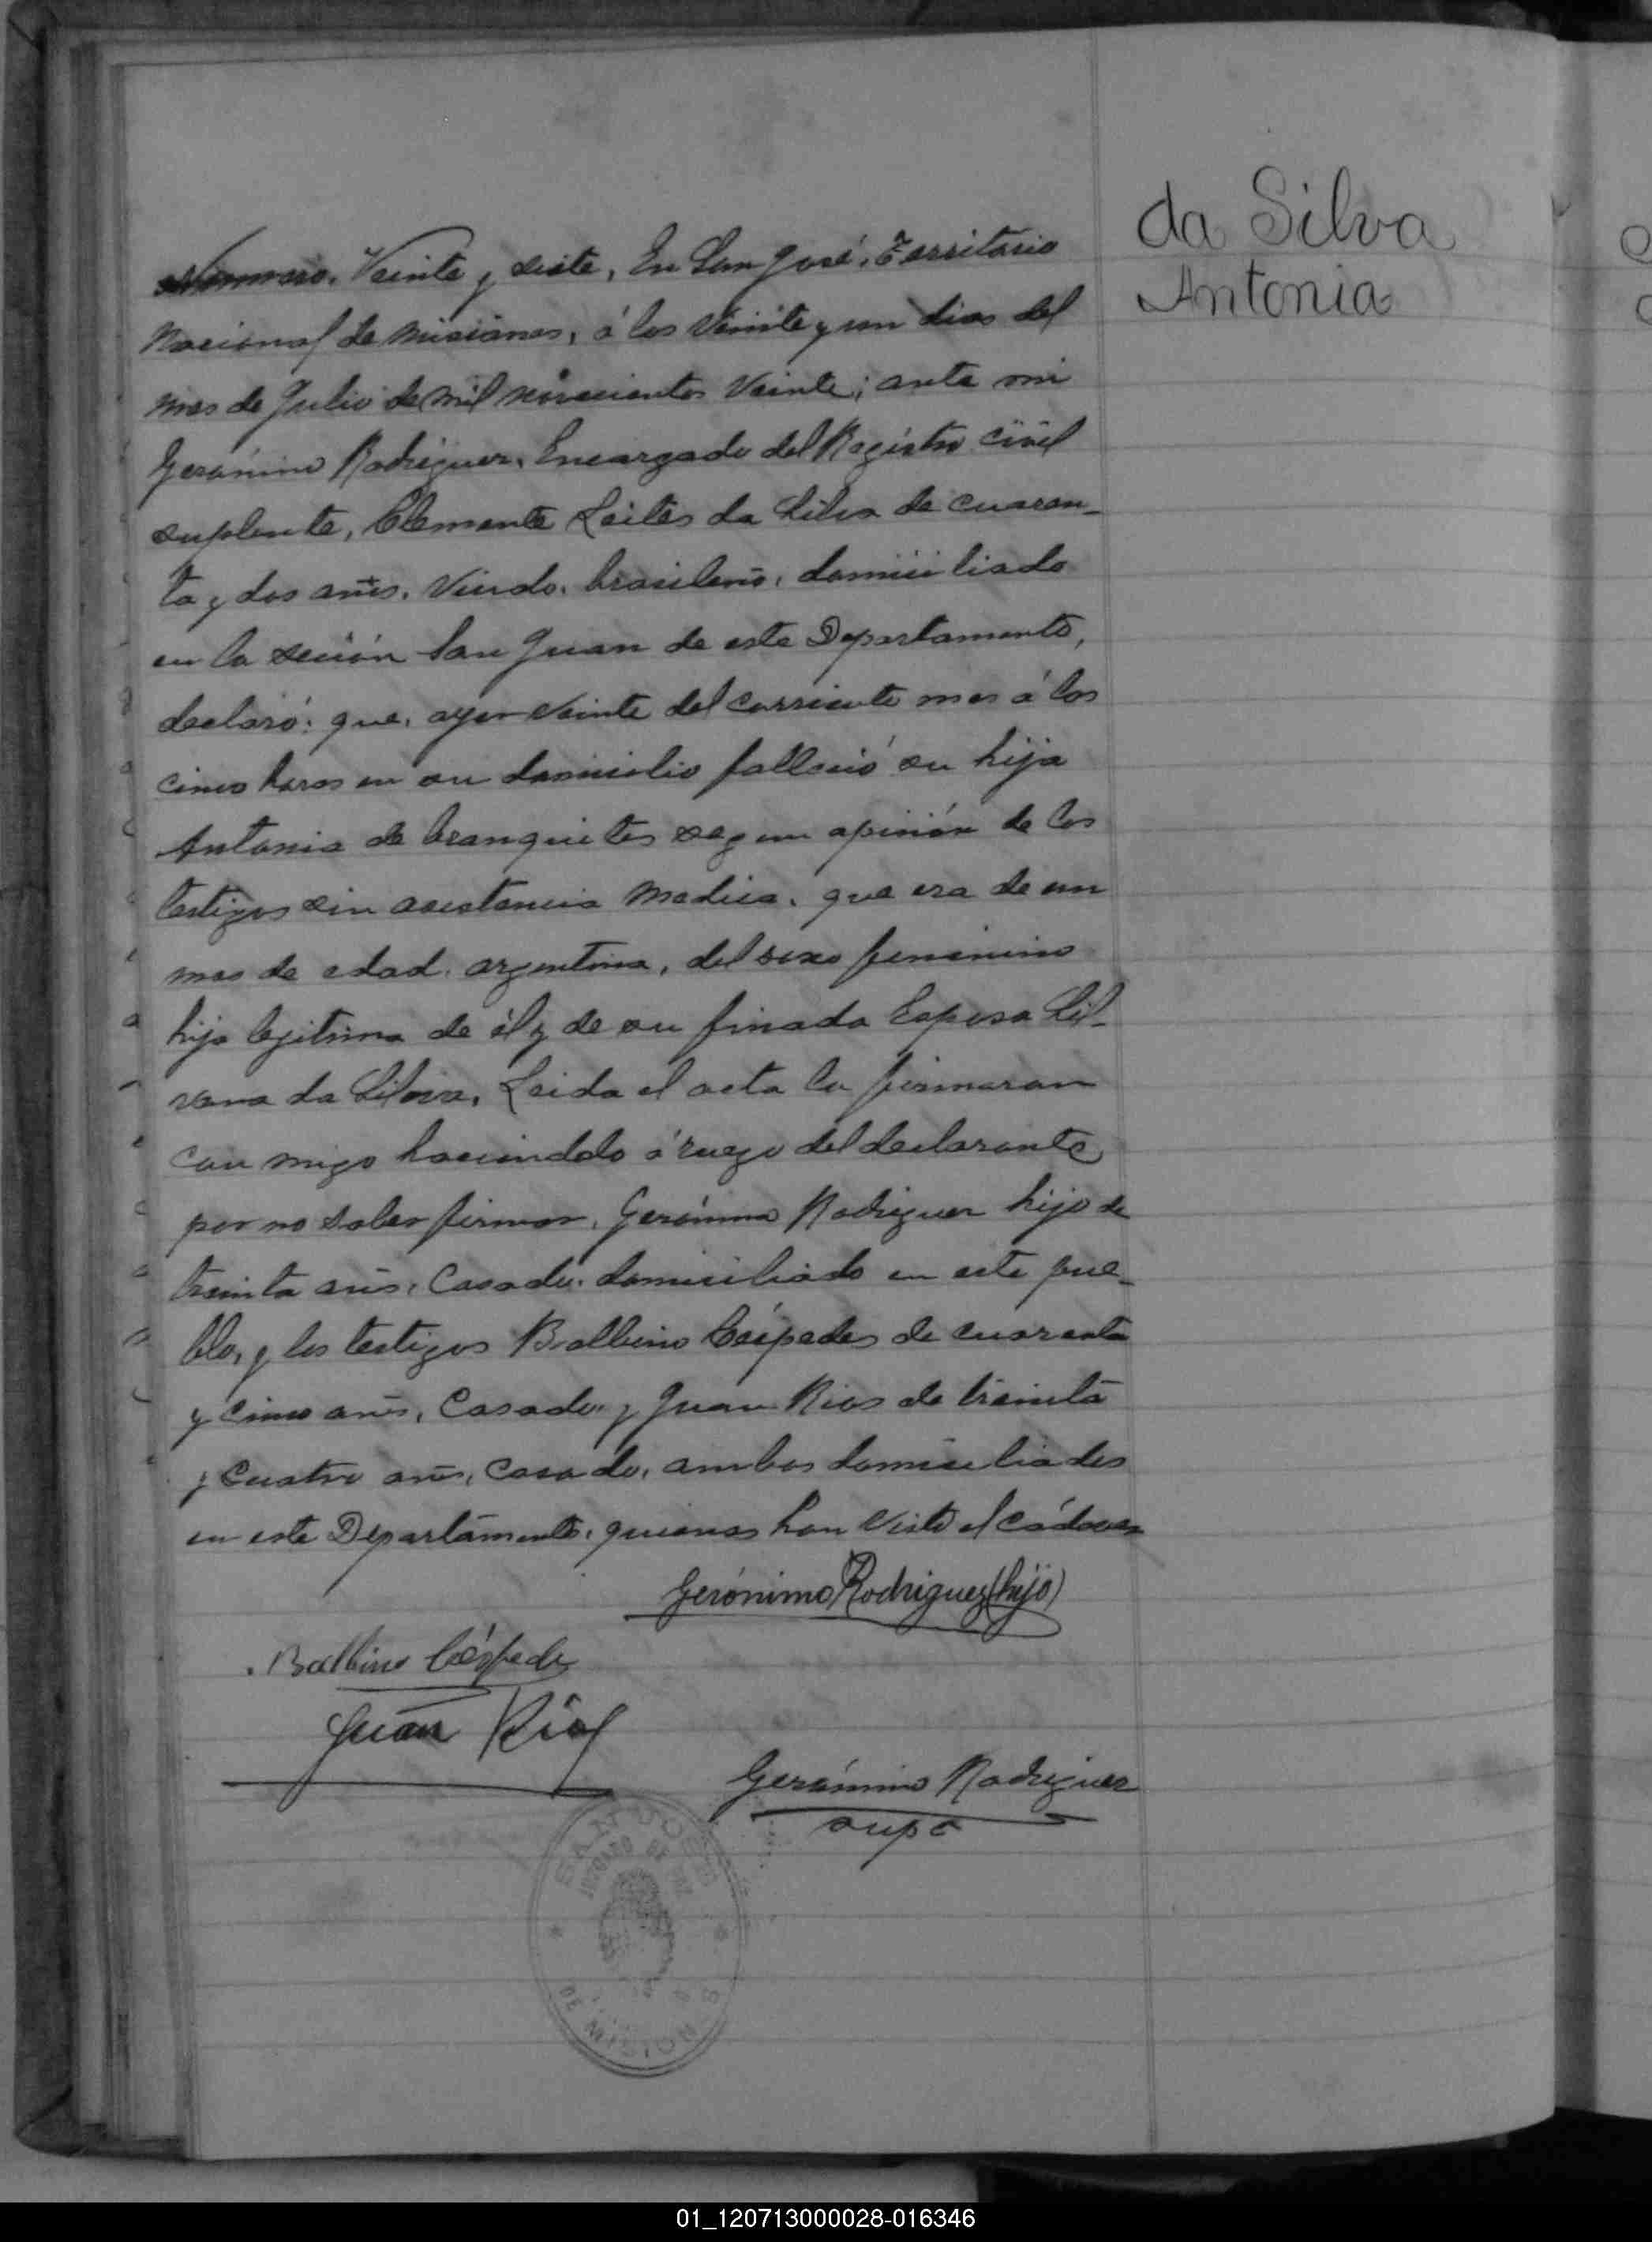 da Silva
Antonia
Nummero. Veinte y siete, En San José, Territorio
Nacional de Misiones, á los Veinte y un dias del
mes de Julio de mil novecientos Veinte; ante mi
Gerónimo Rodriguez, Encargado del Registro Civil
suplente, Clemente Leites da Silva de cuaren-
ta y dos años, Viudo, brasileño, domiciliado
en la sección San Juan de este Departamento,
declaró: que, ayer Veinte del corriente mes á las
cinco horas en su domicilio falleció su hija
Antonia de branquites segun opinión de los
testigos sin asistencia Medica, que era de un
mes de edad, argentina, del sexo femenino
hija legitima de él y de su finada Esposa Sil-
vana da Silvira, Leida el acta la firmaran
con migo haciendolo á ruego del declarante
por no saber firmar, Gerónimo Rodriguez hijo de
treinta años, Casado, domiciliado en este pue-
blo, y los testigos Balbino Céspedes de cuarenta
y cinco años, Casado, y Juan Rios de treinta
y cuatro años, Casado, ambos domiciliados
en este Departamento, quienes han visto el cádaver
Gerónimo Rodriguez (hijo)
Balbino Céspede
Juan Rios
Gerónimo Rodriguez
supe
SAN JOSE
JUZGADO DE PAZ
DE MISIONES
01_120713000028-016346